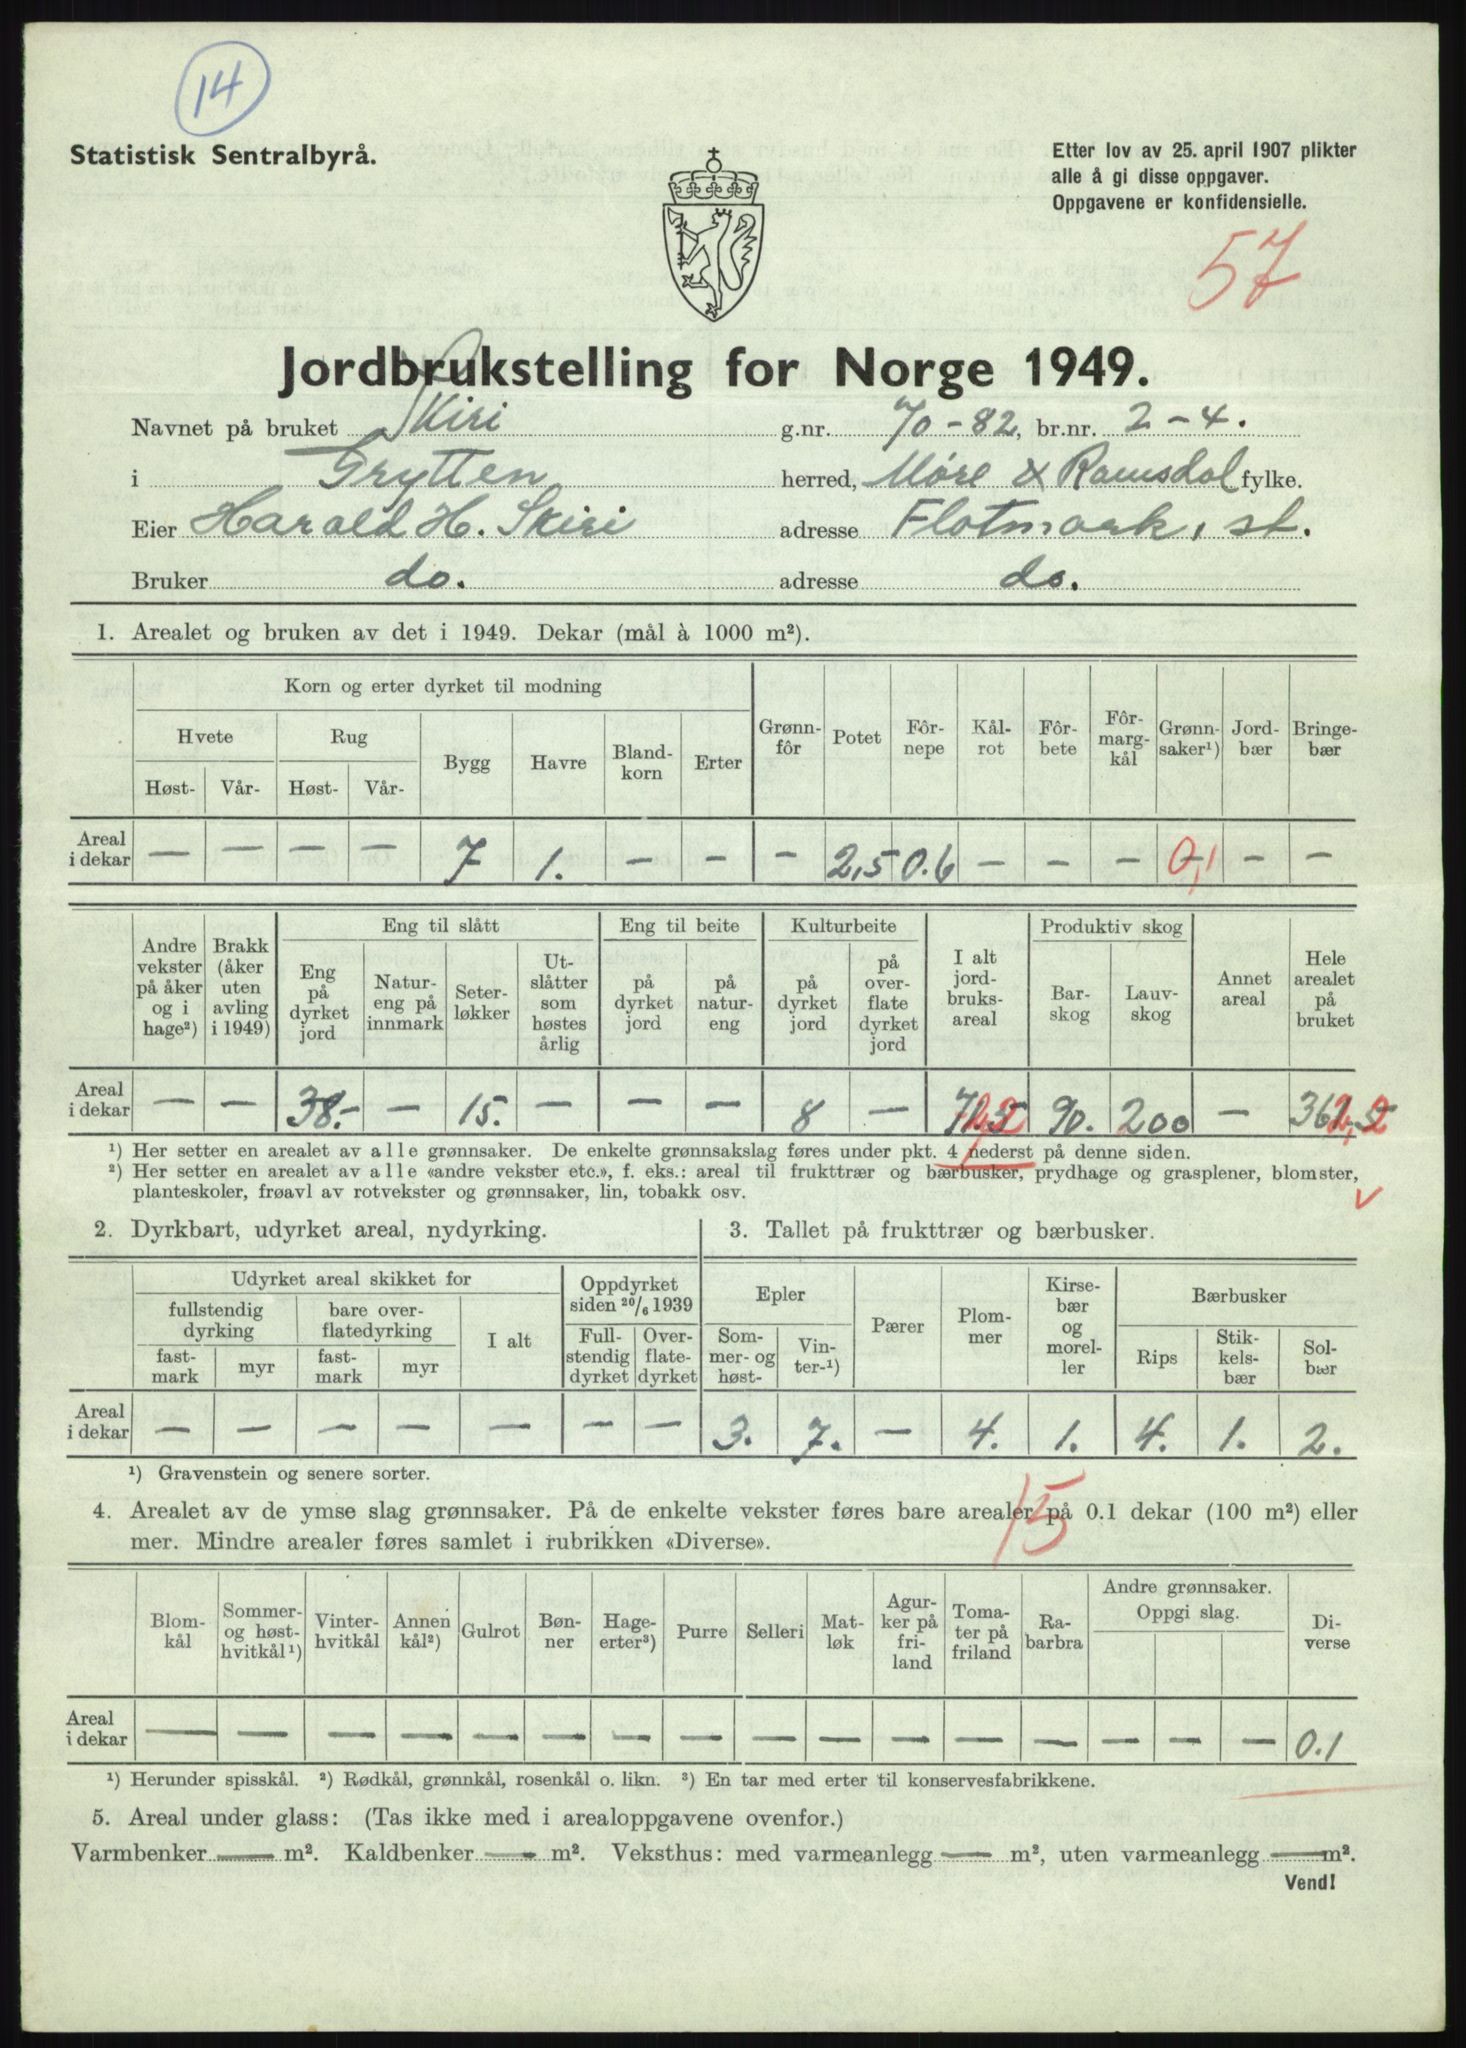 14
Statistisk Sentralbyrå.
Etter lov av 25. april 1907 plikter
alle å gi disse oppgaver.
Oppgavene er konfidensielle.
57
Jordbrukstelling for Norge 1949.
Navnet på bruket Skiri g.nr. 70-82, br.nr. 2-4.
i Grytten herred, Møre & Romsdal fylke.
Eier Harald H. Skiri adresse Flatmark, st.
Bruker do. adresse do.
1. Arealet og bruken av det i 1949. Dekar (mål à 1000 m²).
Korn og erter dyrket til modning
Hvete Rug Bygg Havre Bland-korn Erter Grønn-fôr Potet Fôr-nepe Kål-rot Fôr-bete Fôr-marg-kål Grønn-saker¹) Jord-bær Bringe-bær
Høst- Vår- Høst- Vår-
Areal i dekar — — — — 7 1. — — — 2,5 0.6 — — — 0,1 — —
Eng til slått Eng til beite Kulturbeite Produktiv skog
Andre vekster på åker og i hage²) Brakk (åker uten avling i 1949) Eng på dyrket jord Natur-eng på innmark Seter-løkker Ut-slåtter som høstes årlig på dyrket jord på natur-eng på dyrket jord på over-flate dyrket jord I alt jord-bruks-areal Bar-skog Lauv-skog Annet areal Hele arealet på bruket
Areal i dekar — — 38.- — 15. — — — 8 — 72,2 90. 200 — 362,2
¹) Her setter en arealet av alle grønnsaker. De enkelte grønnsakslag føres under pkt. 4 nederst på denne siden.
²) Her setter en arealet av alle «andre vekster etc.», f. eks.: areal til frukttrær og bærbusker, prydhage og grasplener, blomster,
planteskoler, frøavl av rotvekster og grønnsaker, lin, tobakk osv.
2. Dyrkbart, udyrket areal, nydyrking. 3. Tallet på frukttrær og bærbusker.
Udyrket areal skikket for Oppdyrket siden 20/6 1939 Epler Pærer Plom-mer Kirse-bær og morel-ler Bærbusker
fullstendig dyrking bare over-flatedyrking I alt
fast-mark myr fast-mark myr Full-stendig dyrket Over-flate-dyrket Som-mer- og høst- Vin-ter-¹) Rips Stik-kels-bær Sol-bær
Areal i dekar — — — — — — — 3. 7. — 4. 1. 4. 1. 2.
¹) Gravenstein og senere sorter.
15
4. Arealet av de ymse slag grønnsaker. På de enkelte vekster føres bare arealer på 0.1 dekar (100 m²) eller
mer. Mindre arealer føres samlet i rubrikken «Diverse».
Blom-kål Sommer- og høst-hvitkål¹) Vinter-hvitkål Annen kål²) Gulrot Bøn-ner Hage-erter³) Purre Selleri Mat-løk Agur-ker på fri-land Toma-ter på friland Ra-barbra Andre grønnsaker. Oppgi slag. Di-verse
Areal i dekar — — — — — — — — — — — — — — — — 0.1
¹) Herunder spisskål. ²) Rødkål, grønnkål, rosenkål o. likn. ³) En tar med erter til konservesfabrikkene.
5. Areal under glass: (Tas ikke med i arealoppgavene ovenfor.)
Varmbenker — m². Kaldbenker — m². Veksthus: med varmeanlegg — m², uten varmeanlegg — m².
Vend!